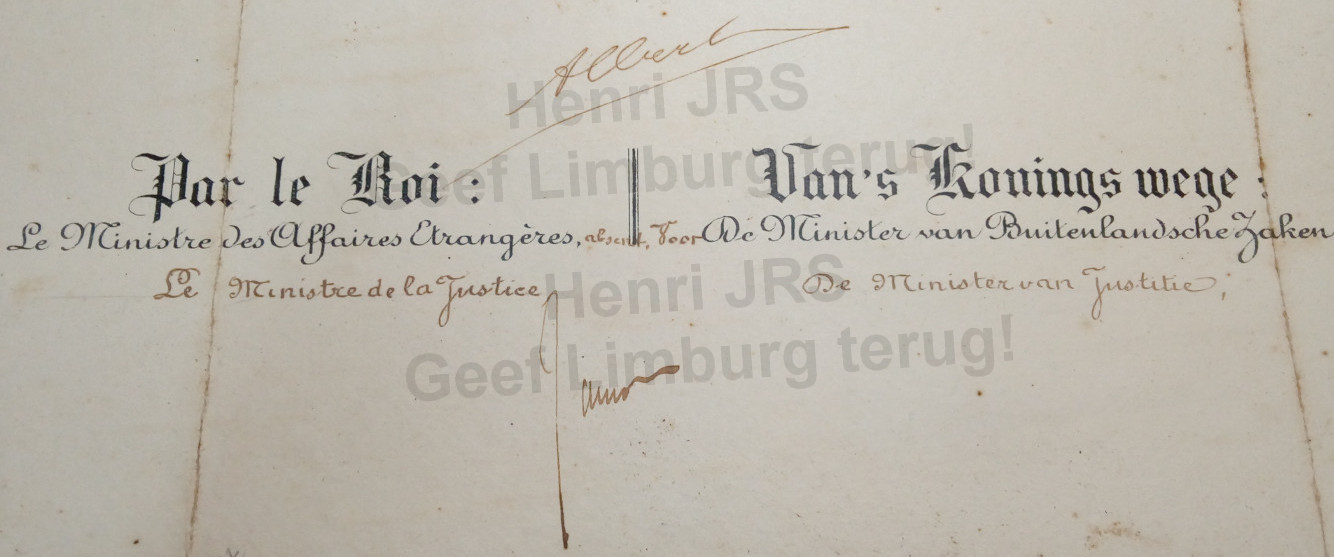 Albert
Henri JRS
Geef Limburg terug!
Par le Roi : Van's Konings wege :
Le Ministre des Affaires Etrangères, absent, Voor De Minister van Buitenlandsche Zaken
Le Ministre de la Justice De Minister van Justitie,
Henri JRS
Geef Limburg terug!